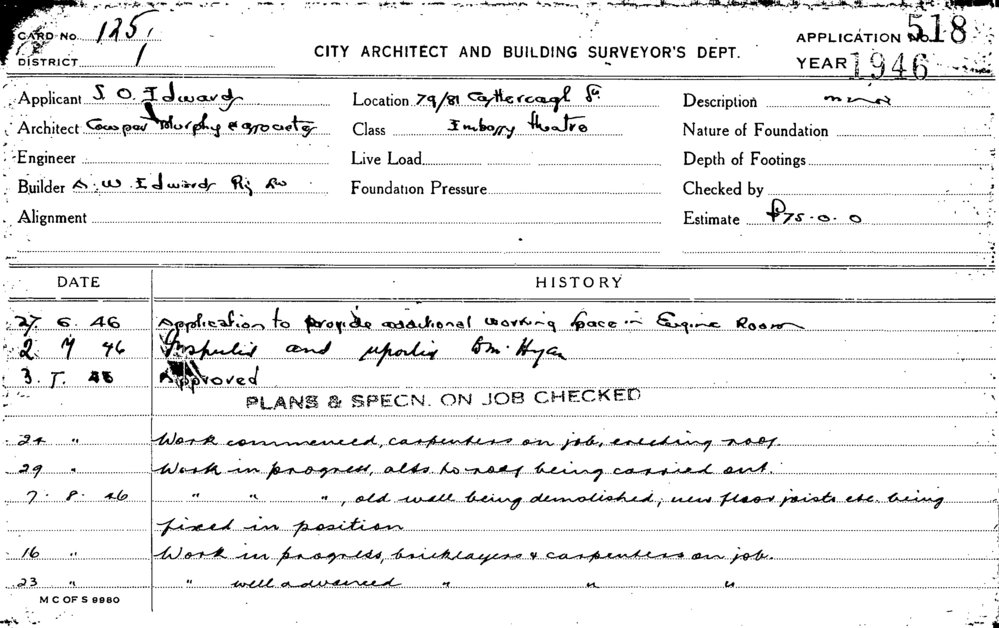 CARD No. 125/1
DISTRICT
CITY ARCHITECT AND BUILDING SURVEYOR'S DEPT.
APPLICATION No. 518
YEAR 1946
Applicant S. O. Edwards
Location 79/81 Castlereagh St.
Description
Architect Cowper Murphy & associates
Class Embassy theatre
Nature of Foundation
Engineer
Live Load
Depth of Footings
Builder A. W. Edwards Pty
Foundation Pressure
Checked by
Alignment
Estimate £75.0.0
DATE
HISTORY
27. 6. 46 Application to provide additional working space in Engine Room
2. 7 46 Inspected and reported
3. 7. 46 Approved
PLANS & SPECN. ON JOB CHECKED
24 " Work commenced, carpenters on job, erecting roof.
29 " Work in progress, alts. to roof being carried out.
7. 8. 46 " " ", old wall being demolished, new floor joists etc. being
fixed in position
16 " Work in progress, bricklayers & carpenters on job.
23 " " well advanced " " "
M C OF S 9980